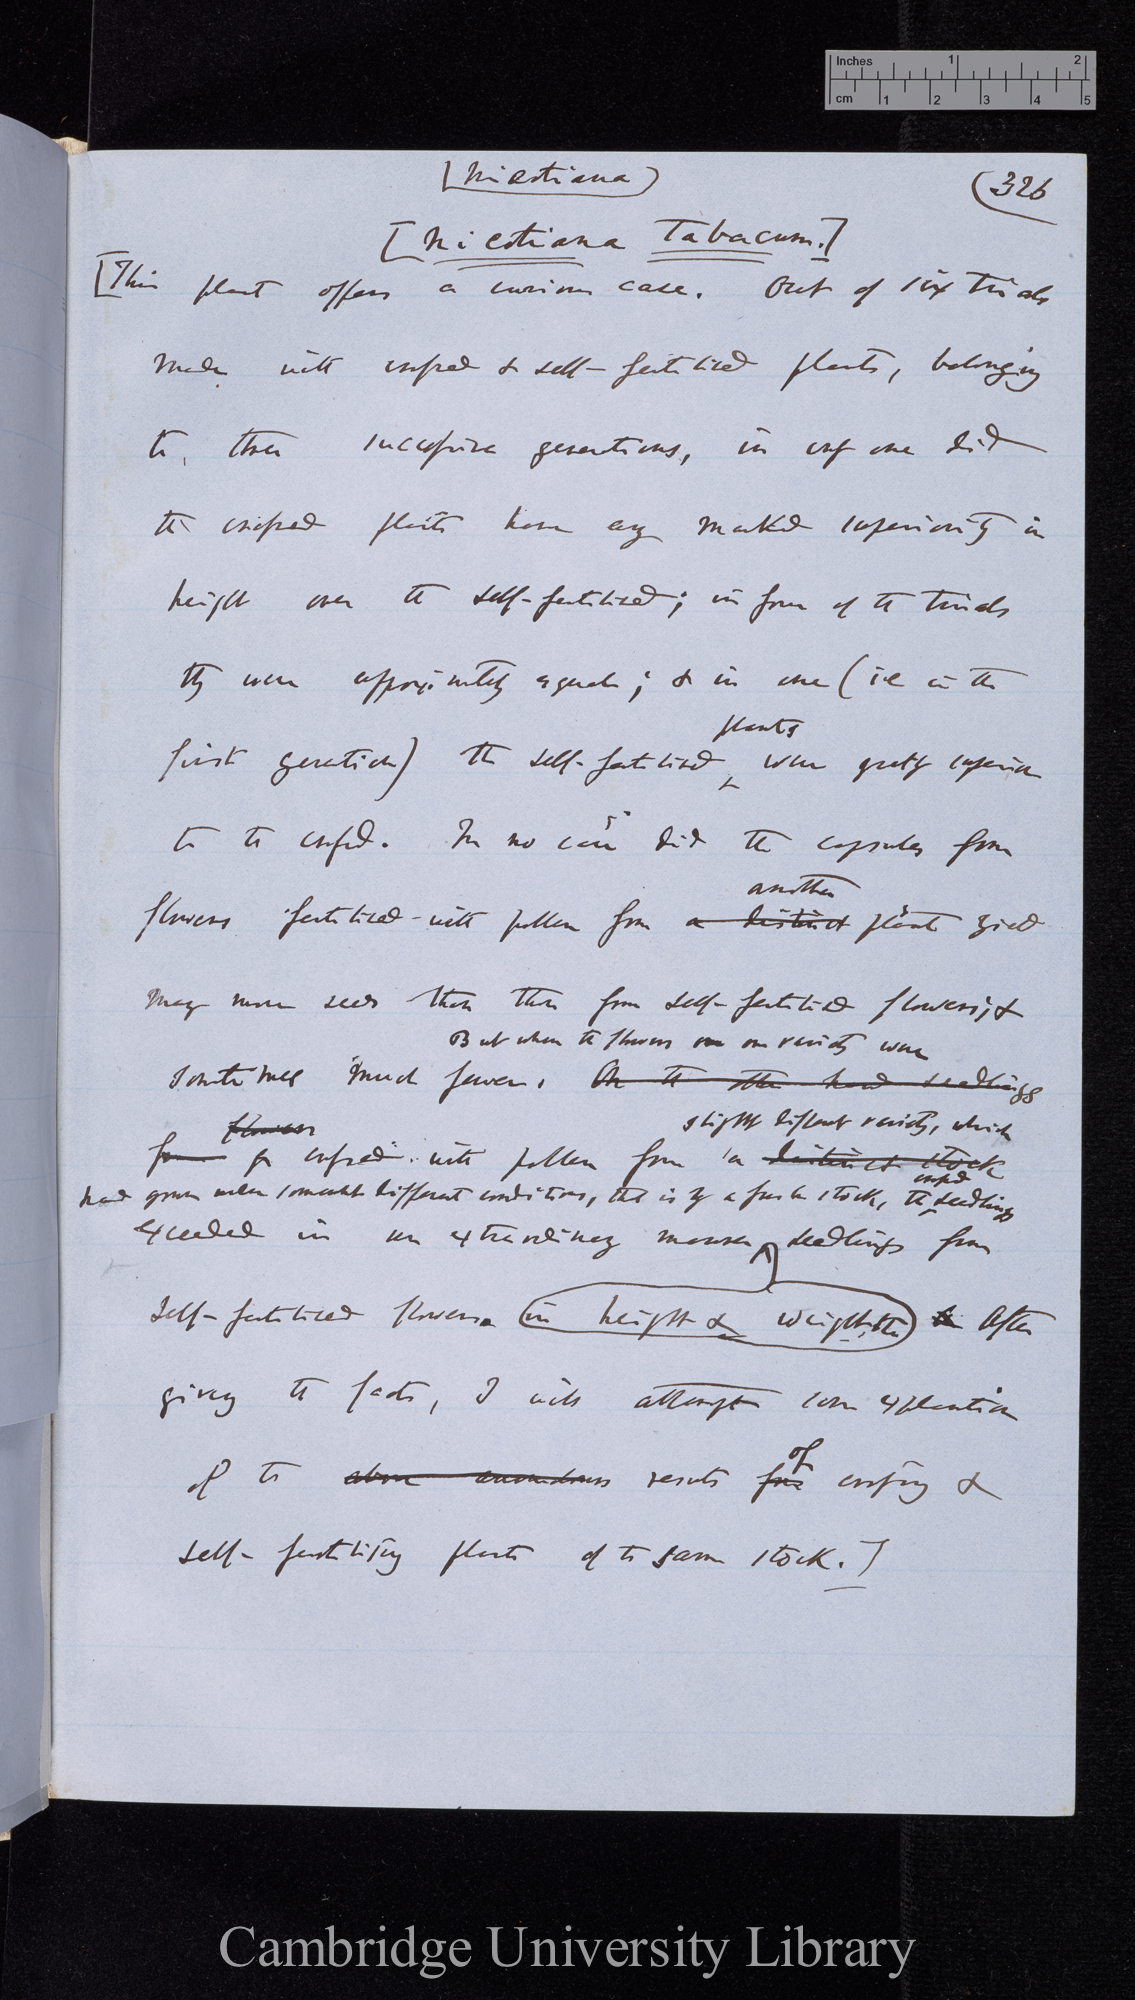 Inches 1 2
cm 1 2 3 4 5
[Nicotiana)
(326
[Nicotiana Tabacum.]
[This plant offers a curious case. Out of six trials
made with crossed & self-fertilised plants, belonging
to three successive generations, in only one did
the crossed plants have any marked superiority in
height over the self-fertilised; in four of the trials
they were approximately equal; & in one (i.e in the
plants
first generation) the self-fertilised were greatly superior
to the crossed. In no case did the capsules from
another
flowers fertilised with pollen from a distinct plant yield
many more seeds than those from self-fertilised flowers; &
But when the flowers on one variety were
sometimes much fewer. On the other hand seedlings
flowers slightly different variety, which
from crossed with pollen from a distinct stock
crossed
had grown under somewhat different conditions, that is by a fresh stock, the seedlings
exceeded in an extraordinary manner seedlings from
self-fertilised flowers. in height & weight, the After
giving the facts, I will attempt some explanation
of
of the above anomalous results from crossing &
self-fertilising plants of the same stock.]
Cambridge University Library